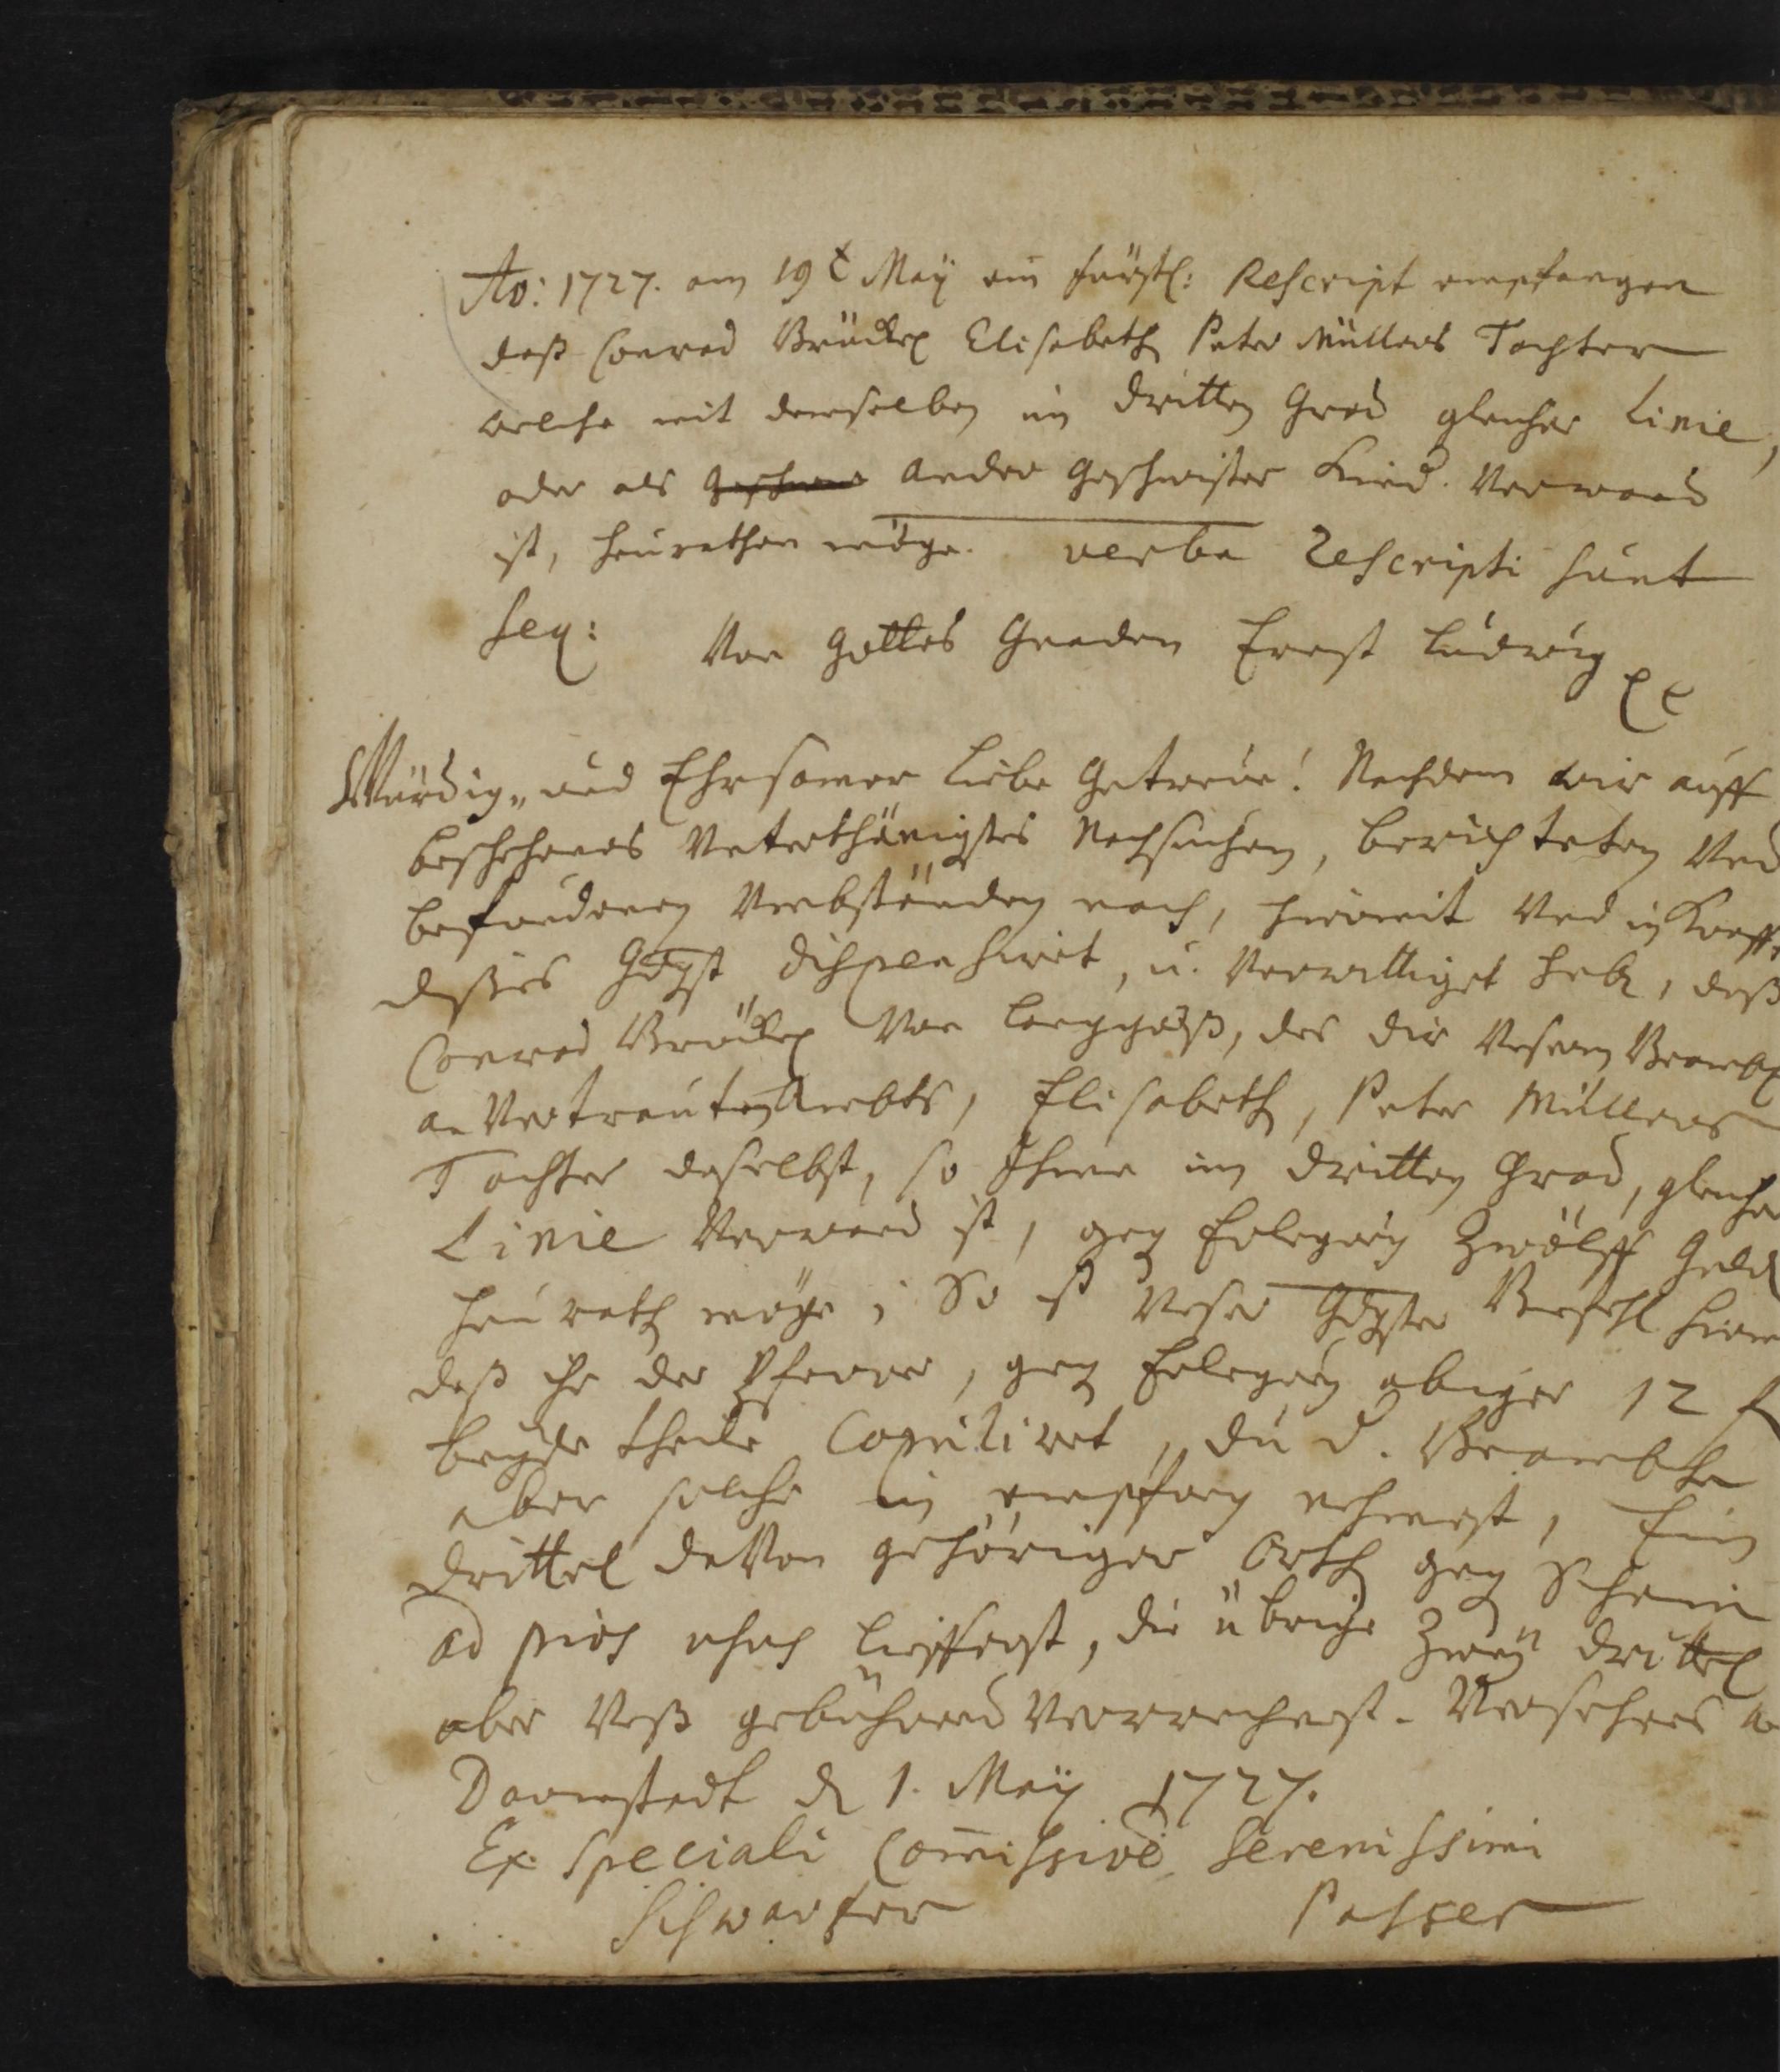 Ao: 1727. am 19t May ein fürstl: Rescript empfangen
daß Conrad Brücklex Elisabeth Peter Müllers Tochter
welche mit demselben im dritten Grad gleicher Linie,
oder als ander Geschwister Kind. Verwand
ist, heurathen möge. verba Rescripti sunt
seq: Von Gottes Gnaden Ernst Ludwig
Würdig- und Ehrsamer Liebe Getreue! Nachdem wir auff
beschehenes Unterthänigstes Nachsuchen, berichteten Und
befundenen Umbständen nach, hiermit Und in Krafft
dißes Gdgst dispensiret, u. Verwilliget habe, daß
Conrad Von Langgöß, des dir Unserm Beambt
an Vertrauten Ambts, Elisabeth, Peter Müllers
Tochter daselbst, so Ihme im dritten Grad, gleicher
Linie Verwand ist, geg Erlegung Zwölff Guld
heurath möge; So ist Unser Gdgster Befehl hierm
daß ihr der Pfarrer, geg Erlegung obiger 12 f
beyde theile Copuliret, du d. Beambte
aber solche in empfang nehmest, Ein
drittel daVon gehöriger Orth geg Schein
ad pios usus liefferst, die übrige Zwey drittel
aber Unß gebührend Verrechnest. Versehens
Darmstadt d 1. May 1727.
Ex Speciali Com̄issioē Serenissimi
Passer